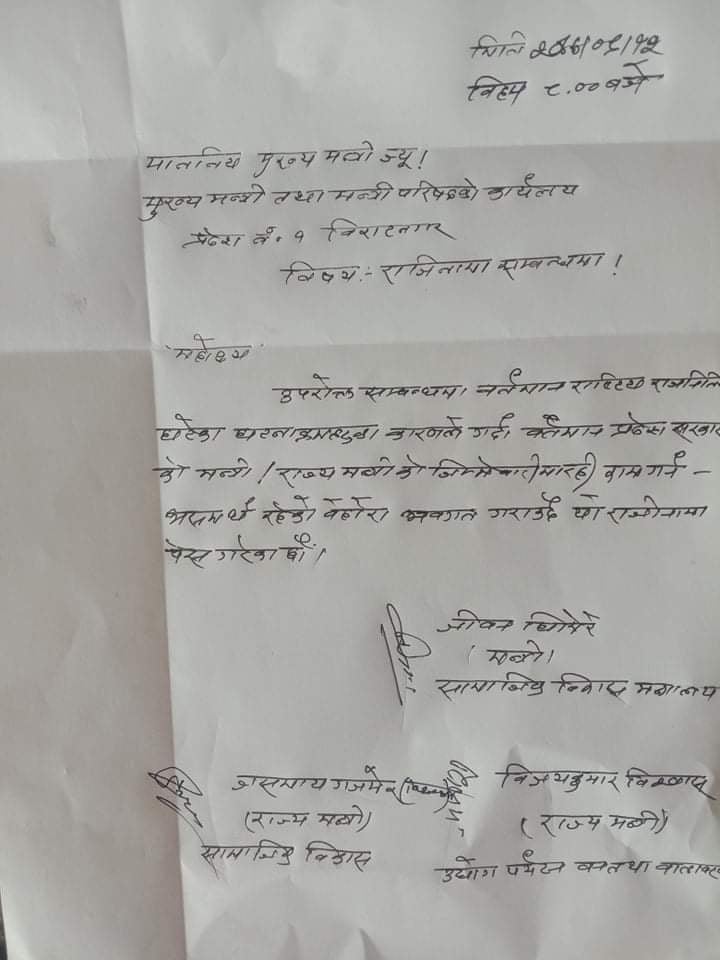 मिति
विहान ८.०० बजे
माननिय मुख्य मन्त्री ज्यू!
मुख्य मन्त्री तथा मन्त्री परिषदको कार्यलय
प्रदेश नं. १ विराटनगर
विषय:- राजिनामा सम्वन्धमा!
महोदय
उपरोक्त सम्वन्धमा वर्तमान राष्ट्रिय
घटेका कारणले गर्दा वर्तमान प्रदेश सरकार
को मन्त्री / राज्य मन्त्री को काम गर्न -
असमर्थ रहेको वेहोरा अवगत गराउदै यो राजीनामा
पेस गरेका छौं।
जीवन घिमिरे
(मन्त्री)
सामाजिक विकास मन्त्रालय
जसमाया गजमेर
(राज्य मन्त्री)
सामाजिक विकास
विजयकुमार विश्वास
(राज्य मन्त्री)
उद्योग पर्यटन वन तथा